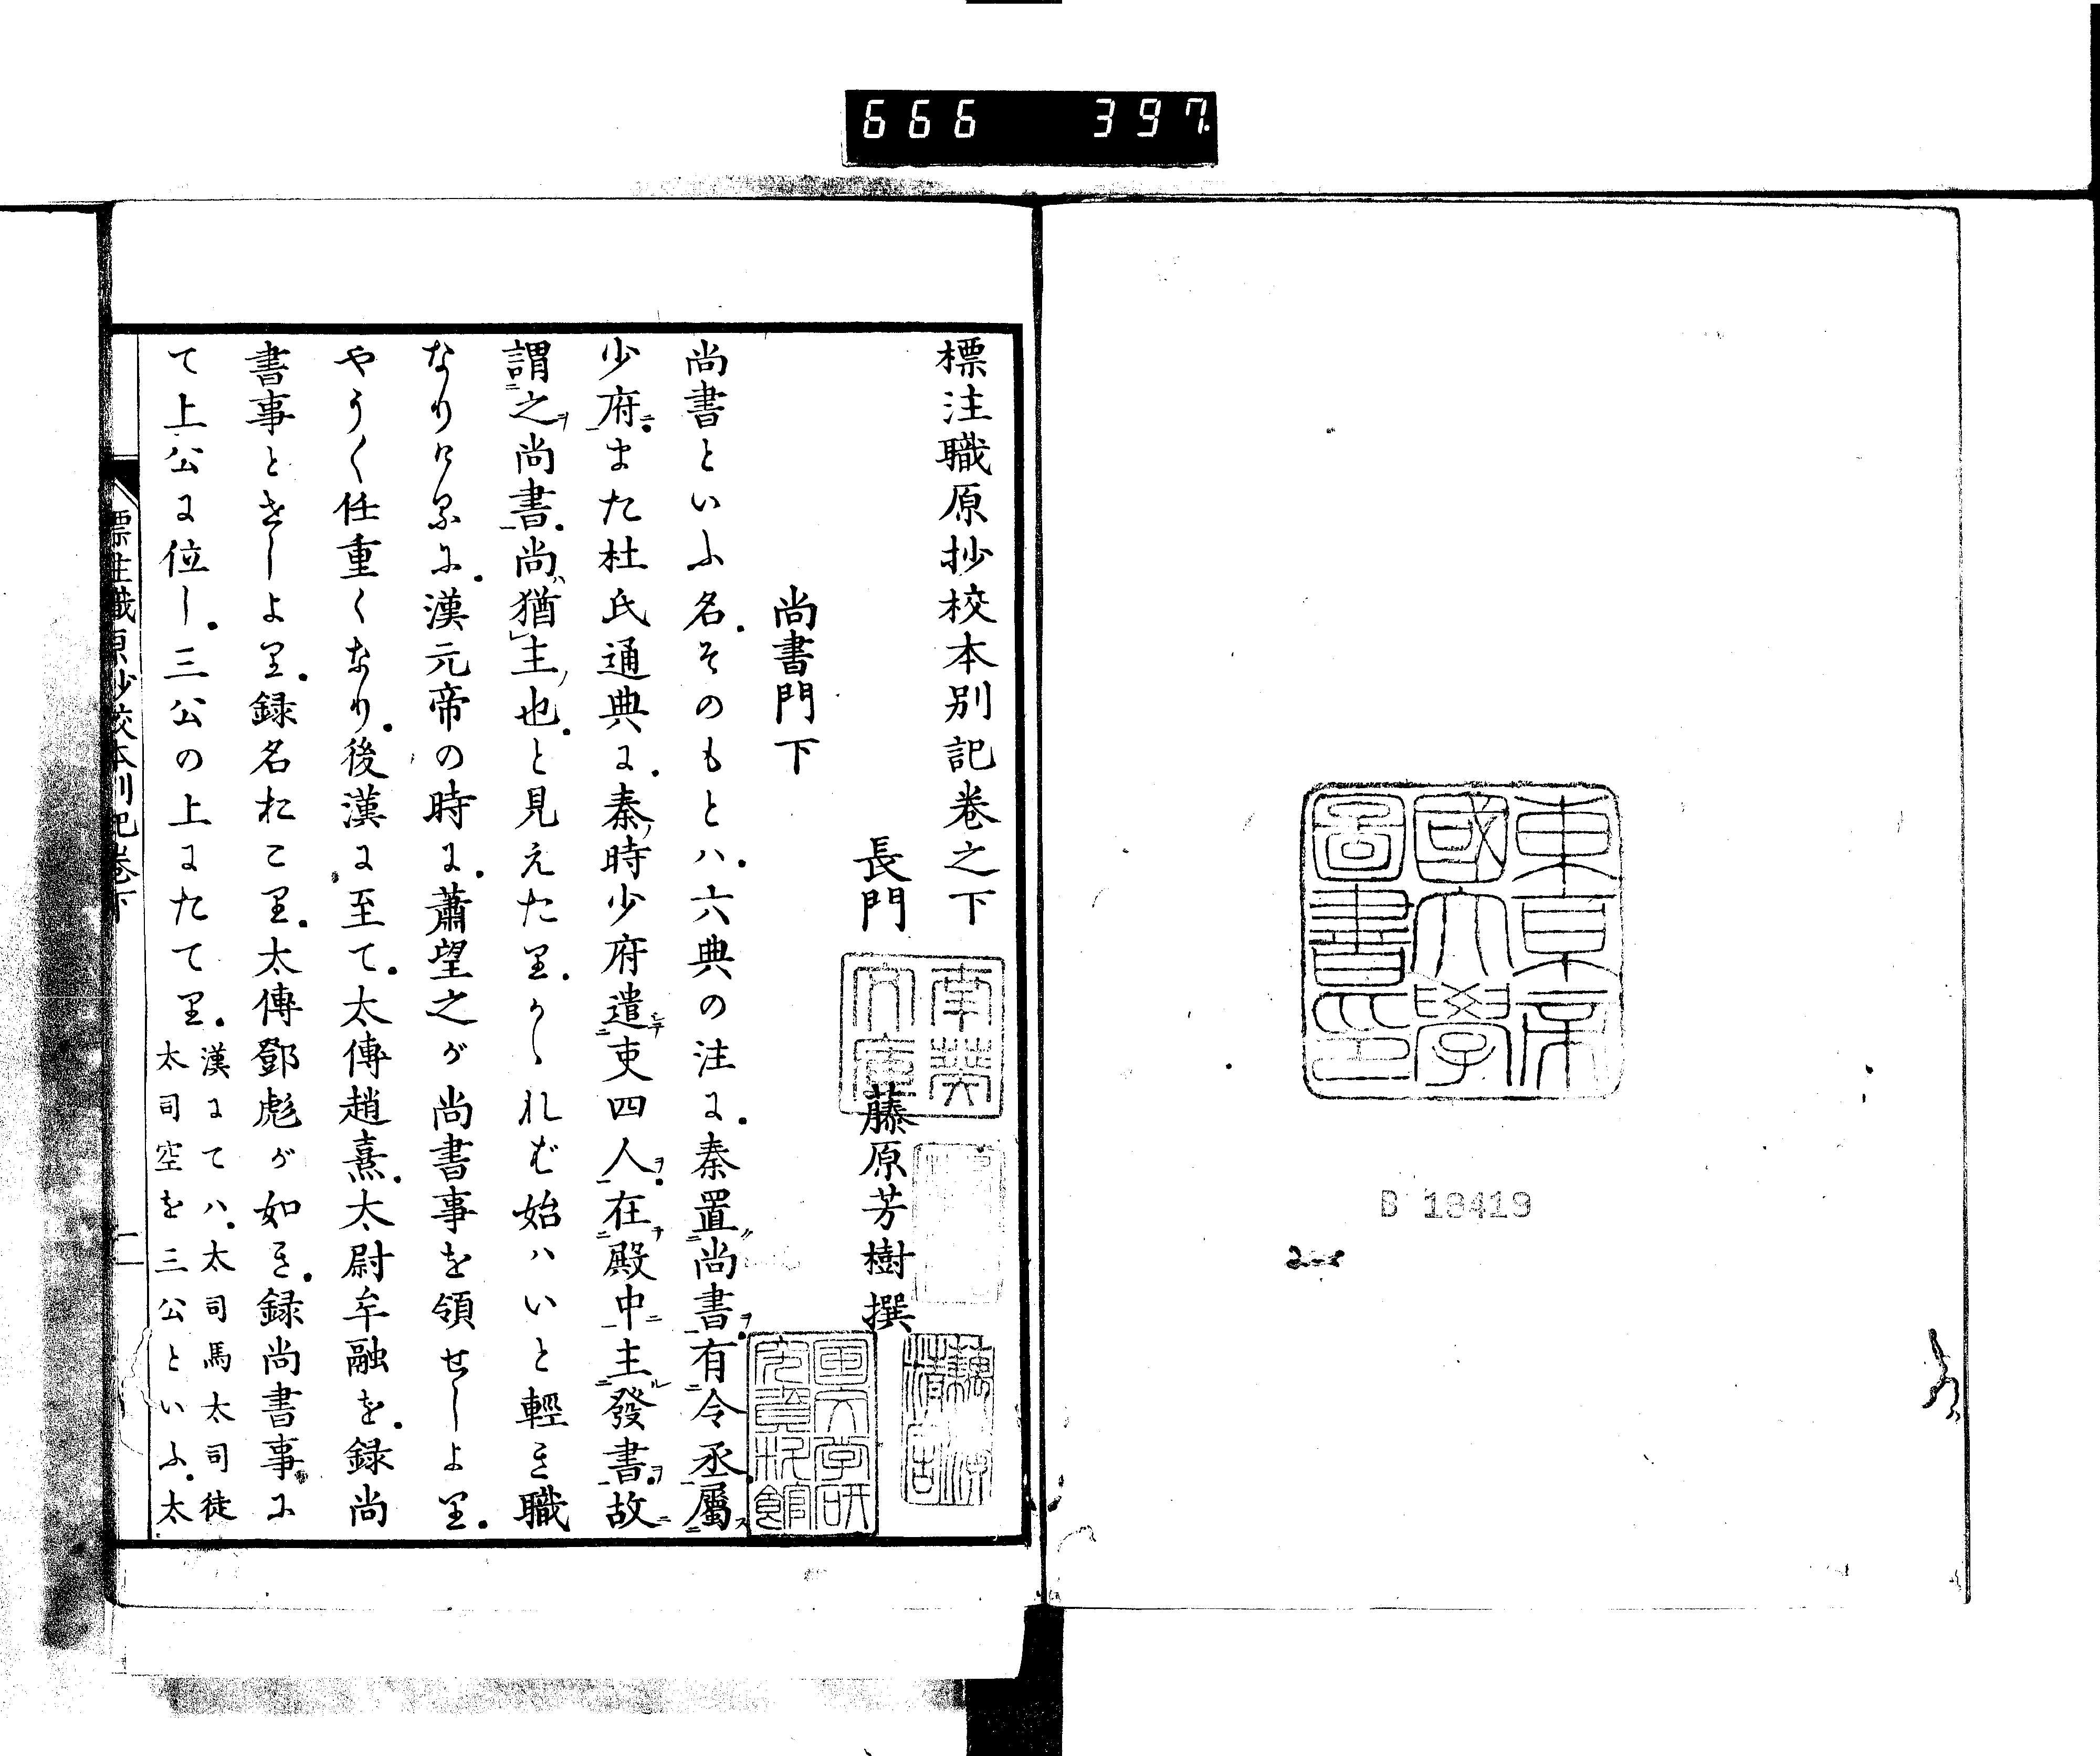 666 397
東京帝
國大學
圖書印
B 18419
標注職原抄校本別記卷之下
長門 藤原芳樹撰
南葵
文庫
國文学研
究資料館
尚書門下
尚書といふ名。そのもとハ。六典の注に。秦置尚書。有令丞。屬
少府。また杜氏通典に。秦時少府遣吏四人。在殿中主發書。故
謂之尚書。尚猶主也。と見えたり。かゝれば始ハいと輕き職
なりけるに。漢元帝の時に。蕭望之が尚書事を領せしより。
やうく任重くなり。後漢に至て。太傅趙熹。太尉牟融を。録尚
書事とせしより。録名おこり。太傅鄧彪が如き。録尚書事に
て上公に位し。三公の上にたてり。漢にてハ。太司馬太司徒
太司空を三公といふ。太
標注職原抄校本別記卷下